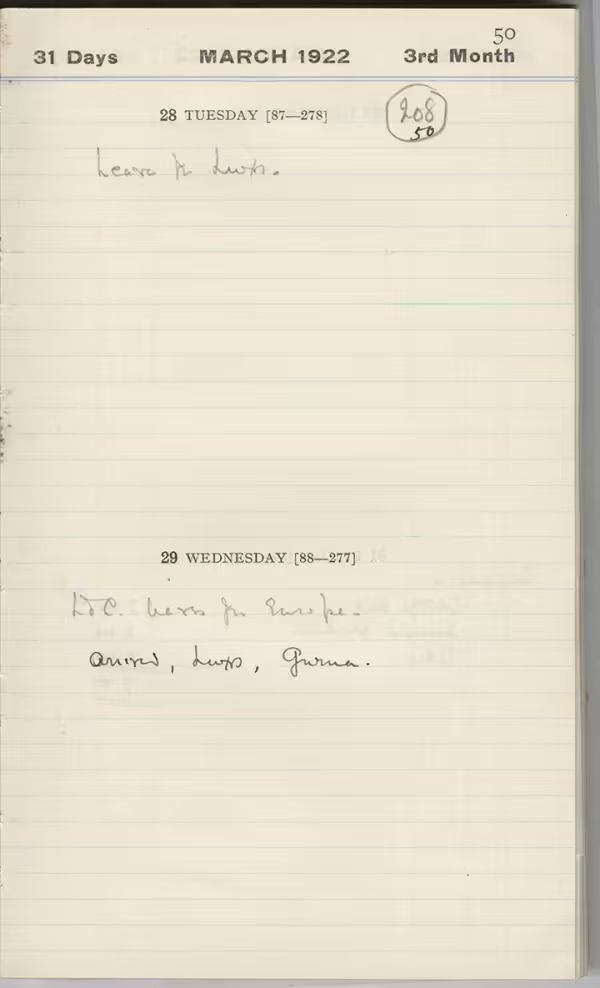 50
31 Days MARCH 1922 3rd Month
28 TUESDAY [87—278]
208
50
Leave for Luxor.
29 WEDNESDAY [88—277]
Ld C. leaves for Europe.
arrived, Luxor, Gurna.